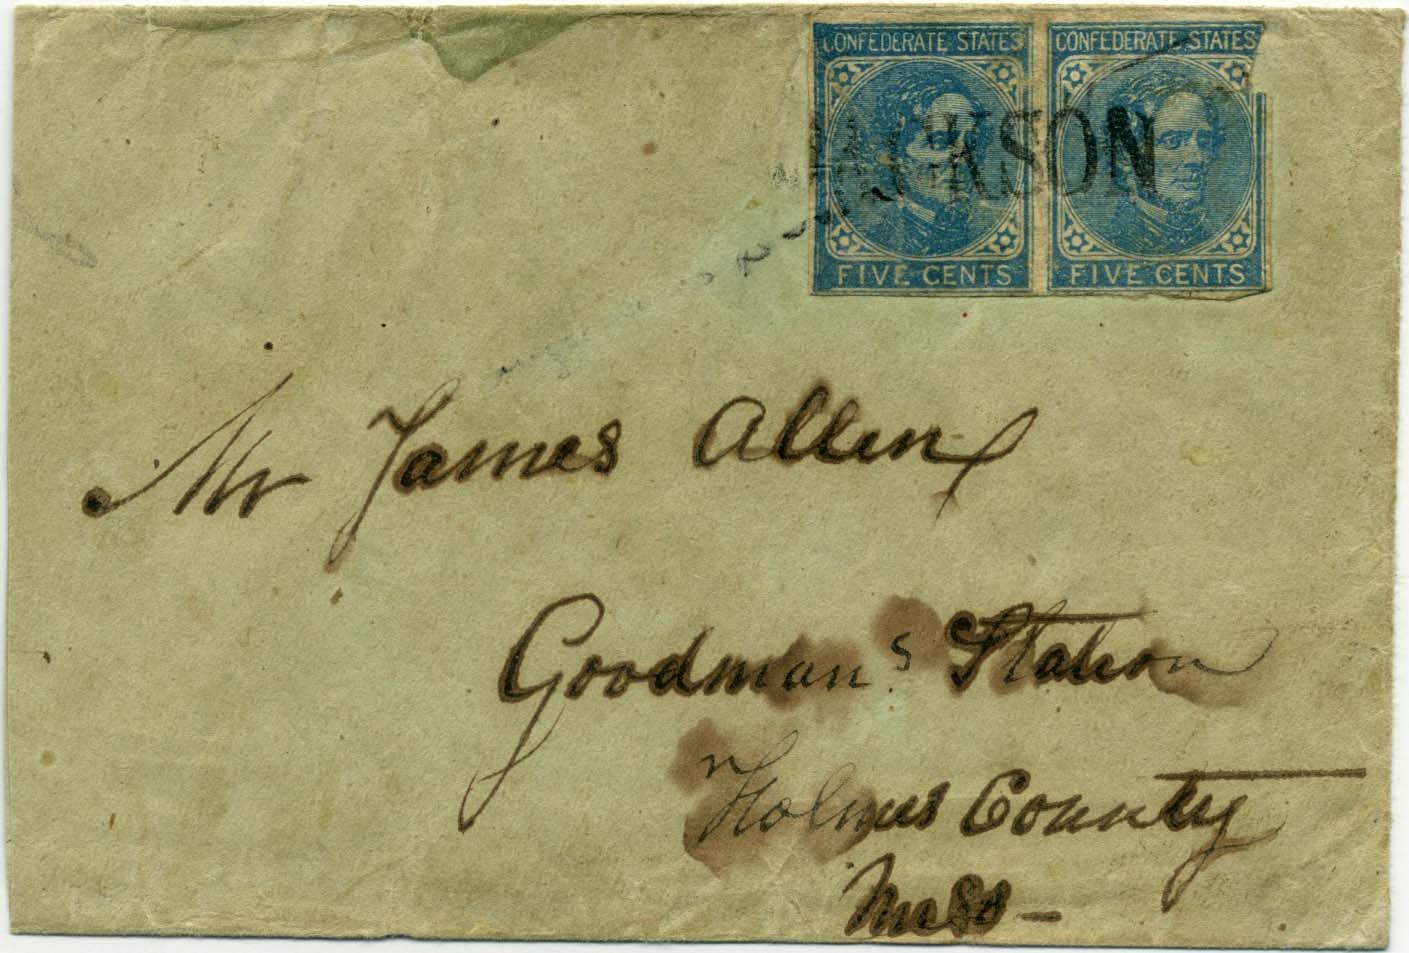 CONFEDERATE STATES CONFEDERATE STATES
JACKSON
FIVE CENTS FIVE CENTS
Mr James Allen
Goodman's Station
Holmes County
Miss